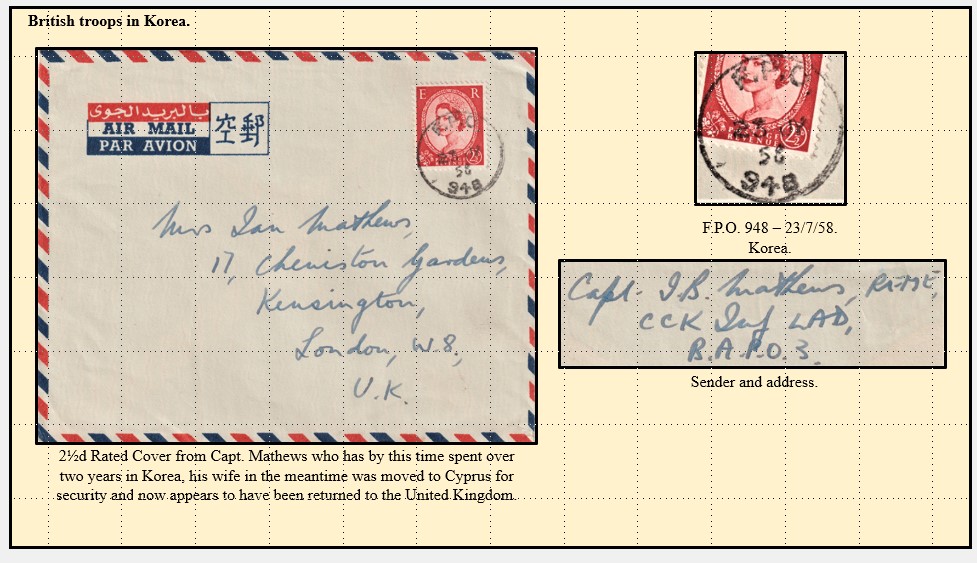 British troops in Korea.
بالبريد الجوى
AIR MAIL
PAR AVION
空郵
E R
F.P.O
23
58
948
Mrs Ian Mathews,
17, Cheniston Gardens,
Kensington,
London, W.8,
U.K.
2½d Rated Cover from Capt. Mathews who has by this time spent over
two years in Korea, his wife in the meantime was moved to Cyprus for
security and now appears to have been returned to the United Kingdom.
F.P.O
23
58
948
2½
F.P.O. 948 – 23/7/58.
Korea.
Capt. I.B. Mathews, REME,
CCK Inf LAD,
B.A.P.O.3.
Sender and address.